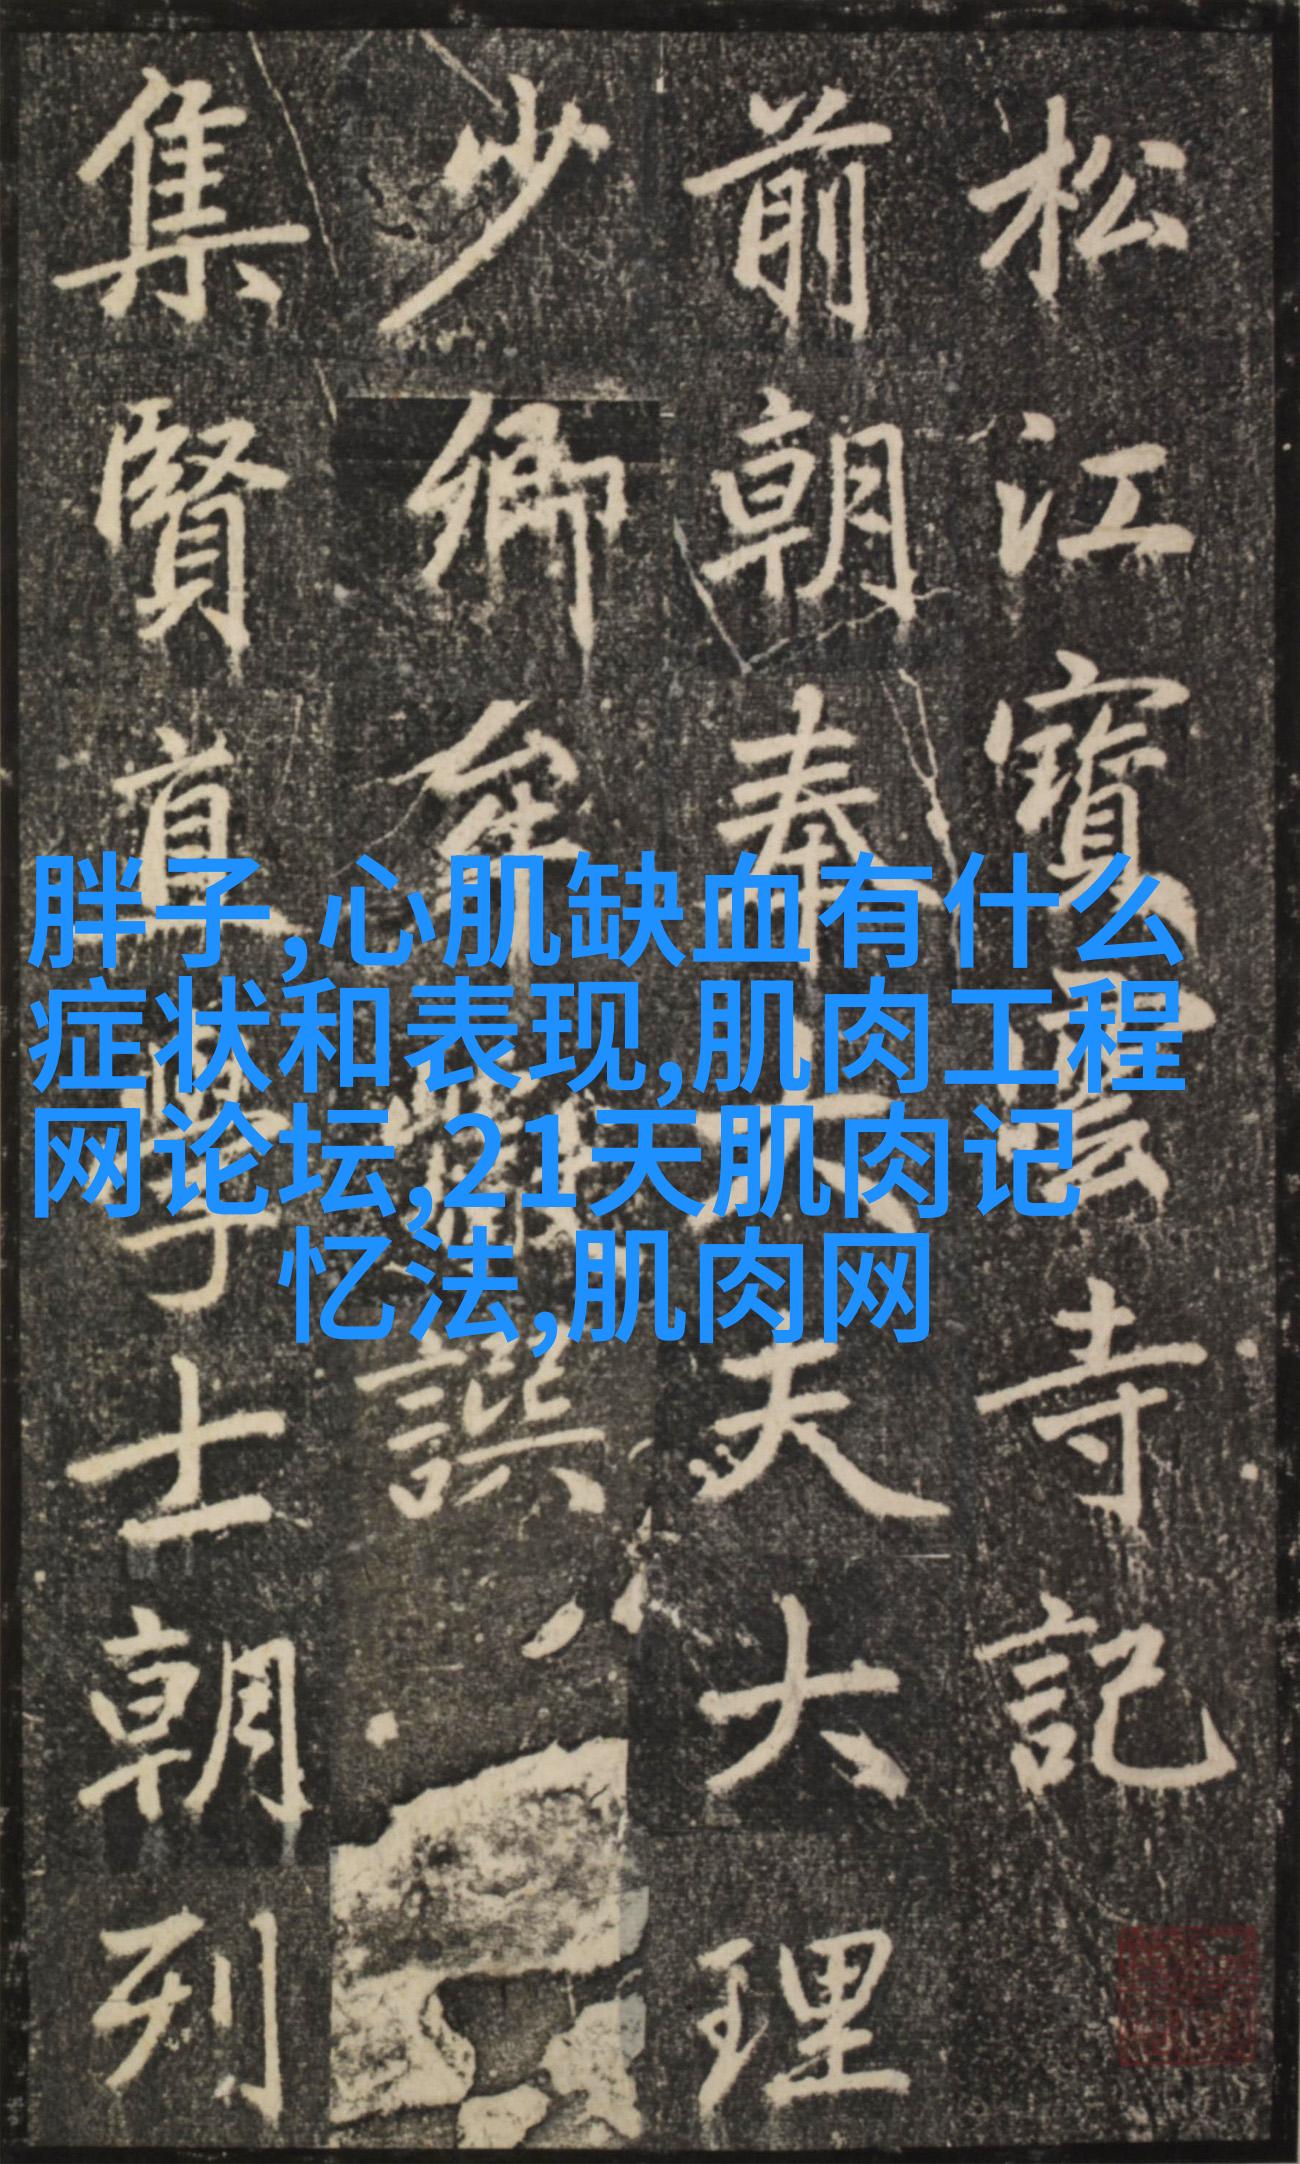 松江寶雲寺記
前朝奉大夫大理
少卿牟巘譔
集賢直學士朝列
胖子,心肌缺血有什么
症状和表现,肌肉工程
网论坛,21天肌肉记
忆法,肌肉网